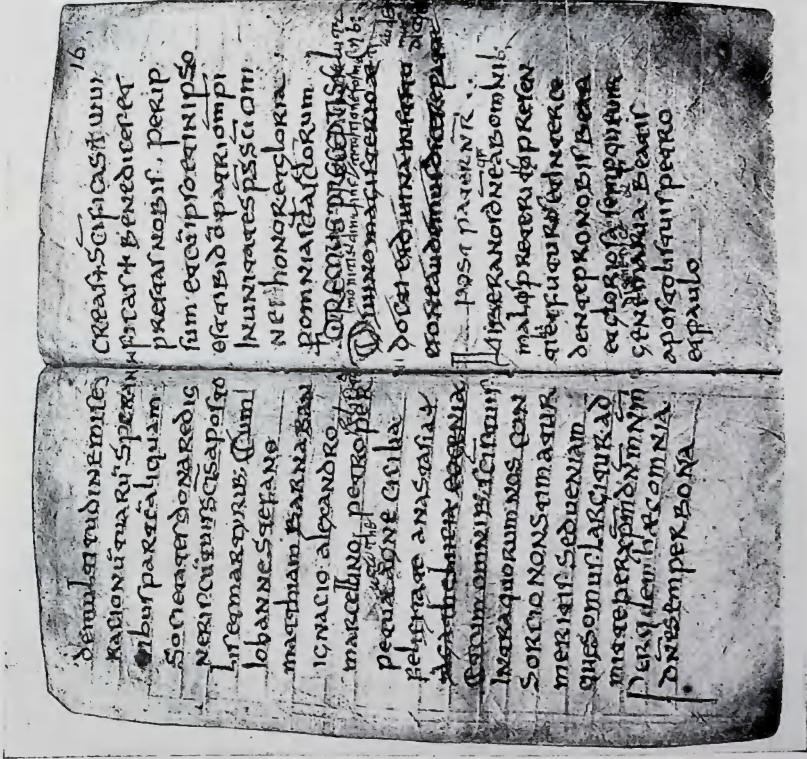 demultitudinemiser
rationū tuarū speran
tibus partē aliquam
societater donare dig
neris cū tuis scis aposto
lis et martyrib; Cum
Iohanne Stefano
matthiam Barnaban
Ignatio alexandro
marcellino petro per
petua agne cicilia
felicitate anastasia et
agathe lucia eogenia
Et cum omnib; scis tuis
Intra quorum nos con
sortio non stimatur
meritis sed ueniam
quesomus largitur ad
mitte per xpm dnm nm
Per quem hec omnia
dne semper bona
16
creas + scificas + uiui
ficas + benedices et
prestas nobis. per ip
sum et cū ipso et in ipso
est tibi dō patri ompi
In unitates sps sci om
nes honor et gloria
p omnia scla sclorum
Oremus preceptis
Diuino magisterio
docti et diuina
post pater nr
Libera nos dne ab omnib;
malis preteritis presen
tib; et futuris et interce
dente pro nobis beata
et gloriosa semperque uir
gene maria beatis
apostolis tuis petro
et paulo